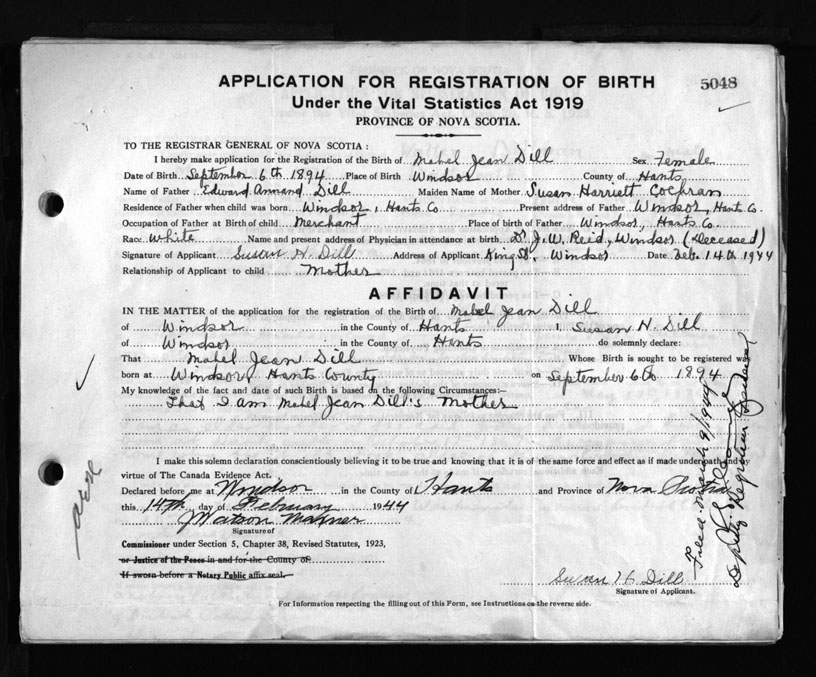 APPLICATION FOR REGISTRATION OF BIRTH 5048
Under the Vital Statistics Act 1919
PROVINCE OF NOVA SCOTIA.
TO THE REGISTRAR GENERAL OF NOVA SCOTIA:
I hereby make application for the Registration of the Birth of Mabel Jean Dill Sex Female
Date of Birth September 6th 1894 Place of Birth Windsor County of Hants
Name of Father Edward Annand Dill Maiden Name of Mother Susan Harriett Cochran
Residence of Father when child was born Windsor, Hants Co Present address of Father Windsor, Hants Co.
Occupation of Father at Birth of child Merchant Place of birth of Father Windsor, Hants Co.
Race White Name and present address of Physician in attendance at birth Dr J. W. Reid, Windsor (Deceased)
Signature of Applicant Susan H. Dill Address of Applicant King St. Windsor Date Feb. 14th 1944
Relationship of Applicant to child Mother
AFFIDAVIT
IN THE MATTER of the application for the registration of the Birth of Mabel Jean Dill
of Windsor in the County of Hants I, Susan H. Dill
of Windsor in the County of Hants do solemnly declare:
That Mabel Jean Dill Whose Birth is sought to be registered was
born at Windsor, Hants County on September 6th 1894
My knowledge of the fact and date of such Birth is based on the following Circumstances:—
That I am Mabel Jean Dill's Mother
I make this solemn declaration conscientiously believing it to be true and knowing that it is of the same force and effect as if made under oath and
virtue of The Canada Evidence Act.
Declared before me at Windsor in the County of Hants and Province of Nova Scotia
this 14th day of February 1944
Signature of
Commissioner under Section 5, Chapter 38, Revised Statutes, 1923,
or Justice of the Peace in and for the County of
If sworn before a Notary Public affix seal.
Susan H. Dill
Signature of Applicant.
For Information respecting the filling out of this Form, see Instructions on the reverse side.
Filed March 9/1944
Deputy Registrar General